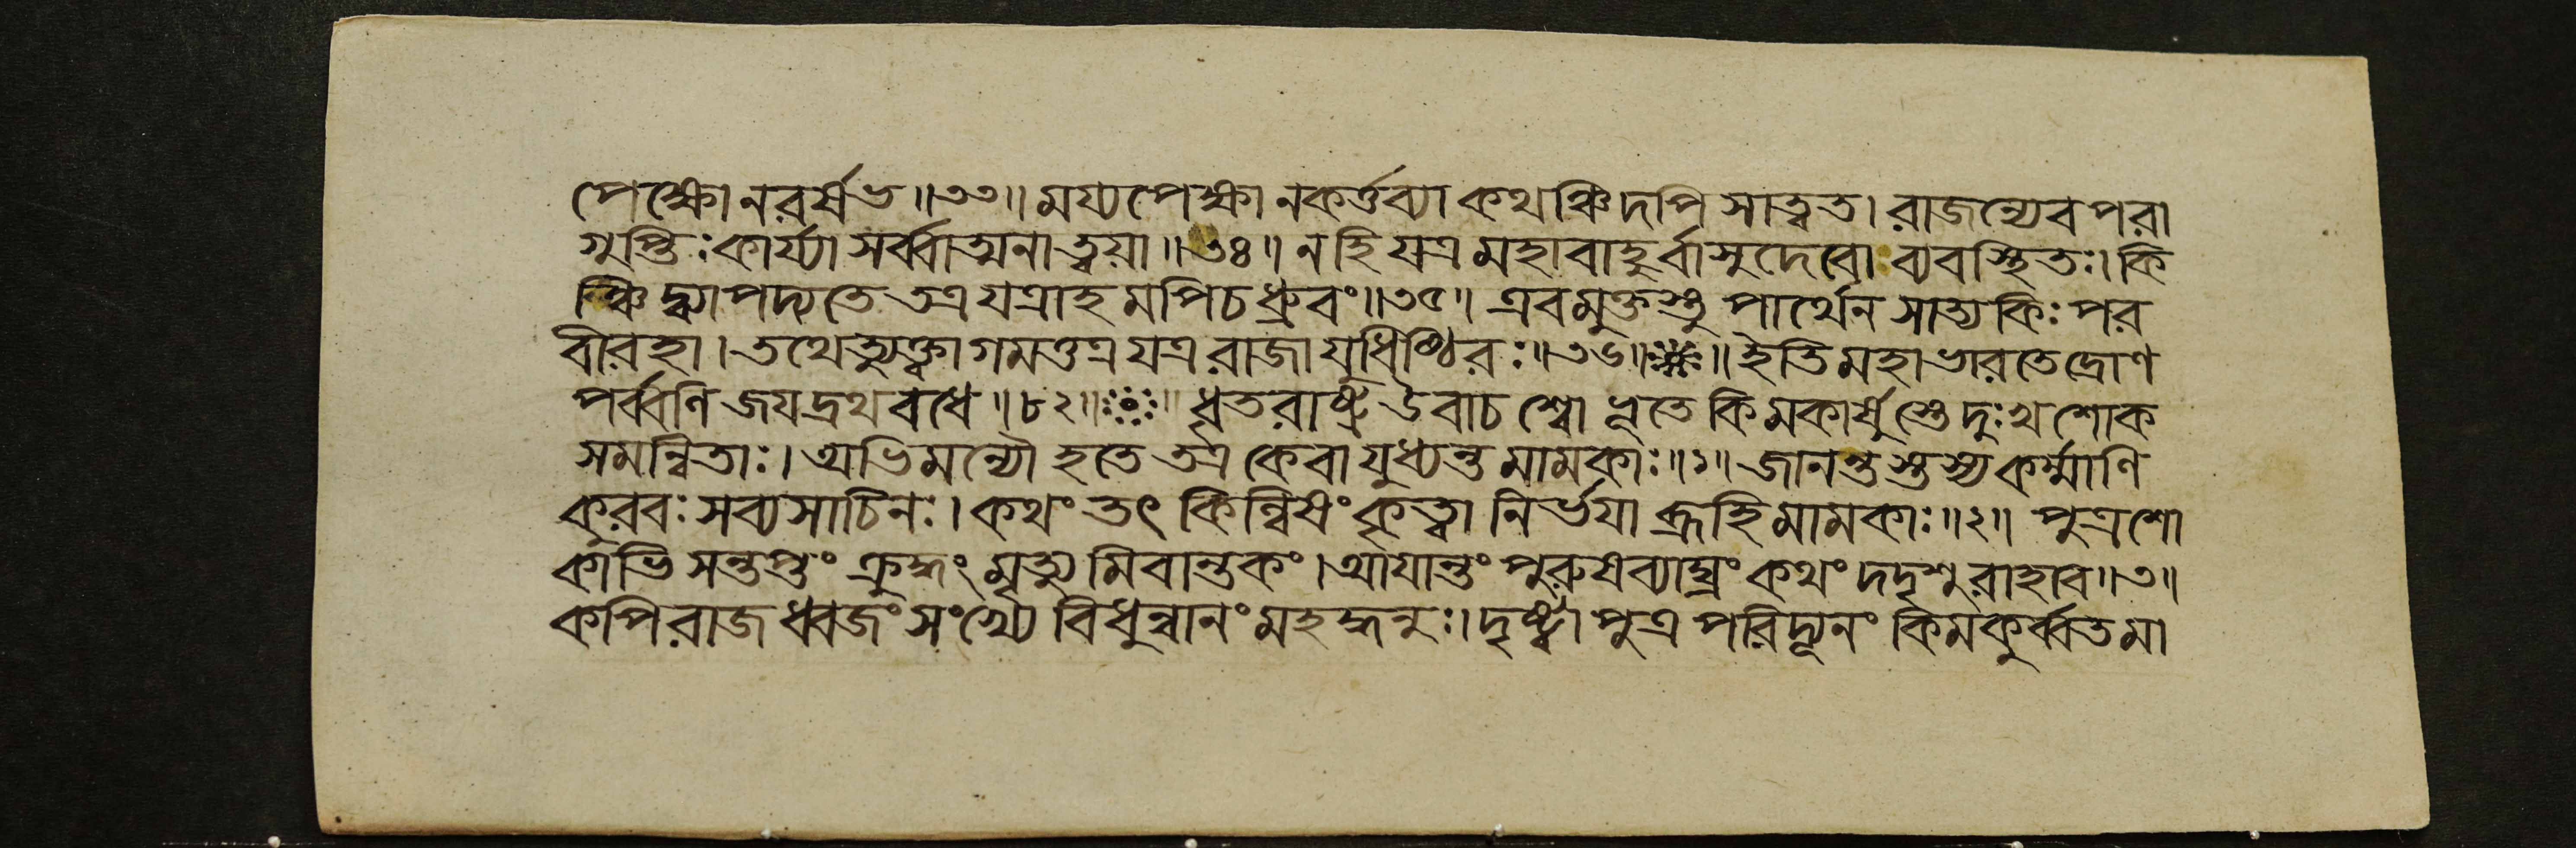 পেক্ষো নরর্ষভ॥৩৩॥ ময্যপেক্ষা ন কর্ত্তব্যা কথঞ্চিদপি সাত্বত। রাজন্যেব পরা
গুপ্তিঃ কার্য্যা সর্ব্বাত্মনা ত্বয়া॥৩৪॥ ন হি যত্র মহাবাহুর্বাসুদেবো ব্যবস্থিতঃ। কি
ঞ্চিদ্ব্যাপদ্যতে তত্র যত্রাহমপি চ ধ্রুবং॥৩৫॥ এবমুক্তস্তু পার্থেন সাত্যকিঃ পর
বীরহা। তথেত্যুক্ত্বাগমত্তত্র যত্র রাজা যুধিষ্ঠিরঃ॥৩৬॥ ॥ ইতি মহাভারতে দ্রোণ
পর্ব্বণি জয়দ্রথবধে॥৮২॥ ॥ ধৃতরাষ্ট্র উবাচ শ্বোভূতে কিমকার্ষুস্তে দুঃখশোক
সমন্বিতাঃ। অভিমন্যৌ হতে তত্র কে বা যুধ্যন্ত মামকাঃ॥১॥ জানন্তস্তস্য কর্ম্মাণি
কুরবঃ সব্যসাচিনঃ। কথং তৎ কিল্বিষং কৃত্বা নির্ভয়া ব্রূহি মামকাঃ॥২॥ পুত্রশো
কাভিসন্তপ্তং ক্রুদ্ধং মৃত্যুমিবান্তকং। আয়ান্তং পুরুষব্যাঘ্রং কথং দদৃশুরাহবে॥৩॥
কপিরাজধ্বজং সংখ্যে বিধুন্বানং মহদ্ধনুঃ। দৃষ্ট্বা পুত্রপরিদ্যূনং কিমকুর্ব্বত মা